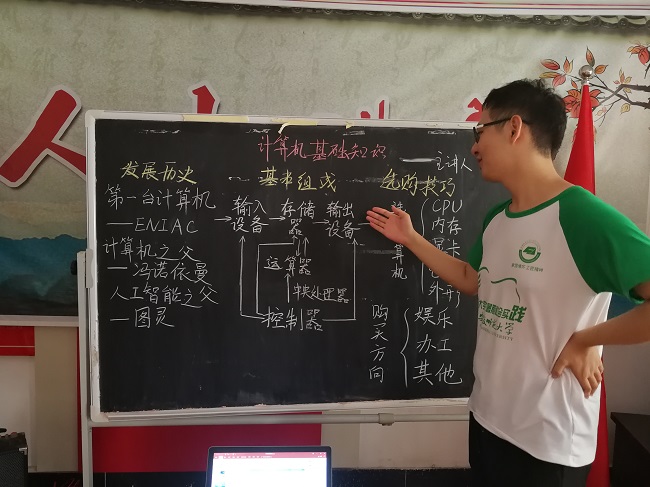 计算机基础知识
主讲人
发展历史
第一台计算机
——ENIAC
计算机之父
—冯诺依曼
人工智能之父
—图灵
基本组成
输入设备
存储器
输出设备
运算器
中央处理器
控制器
选购技巧
算机
CPU
内存
显卡
购买方向
娱乐
办工
其他
实践
大学